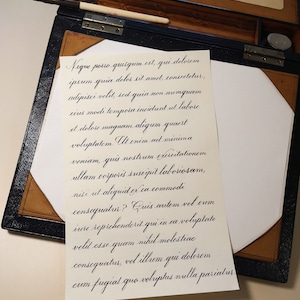 Neque porro quisquam est, qui dolorem
ipsum quia dolor sit amet, consectetur,
adipisci velit, sed quia non numquam
eius modi tempora incidunt ut labore
et dolore magnam aliquam quaerat
voluptatem. Ut enim ad minima
veniam, quis nostrum exercitationem
ullam corporis suscipit laboriosam,
nisi ut aliquid ex ea commodi
consequatur? Quis autem vel eum
iure reprehenderit qui in ea voluptate
velit esse quam nihil molestiae
consequatur, vel illum qui dolorem
eum fugiat quo voluptas nulla pariatur